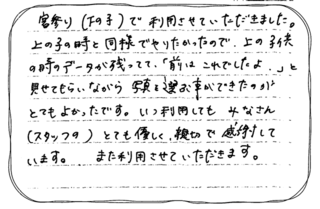 宮参り(下の子)で利用させていただきました。
上の子の時と同様でやりたかったので、上の子供
の時のデータが残ってて、「前はこれでしたよ..」と
見せてもらいながら 写真を選ぶ事ができたのが
とてもよかったです。いつ利用しても みなさん
(スタッフの) とても優しく、親切で 感謝して
います。 また利用させていただきます。